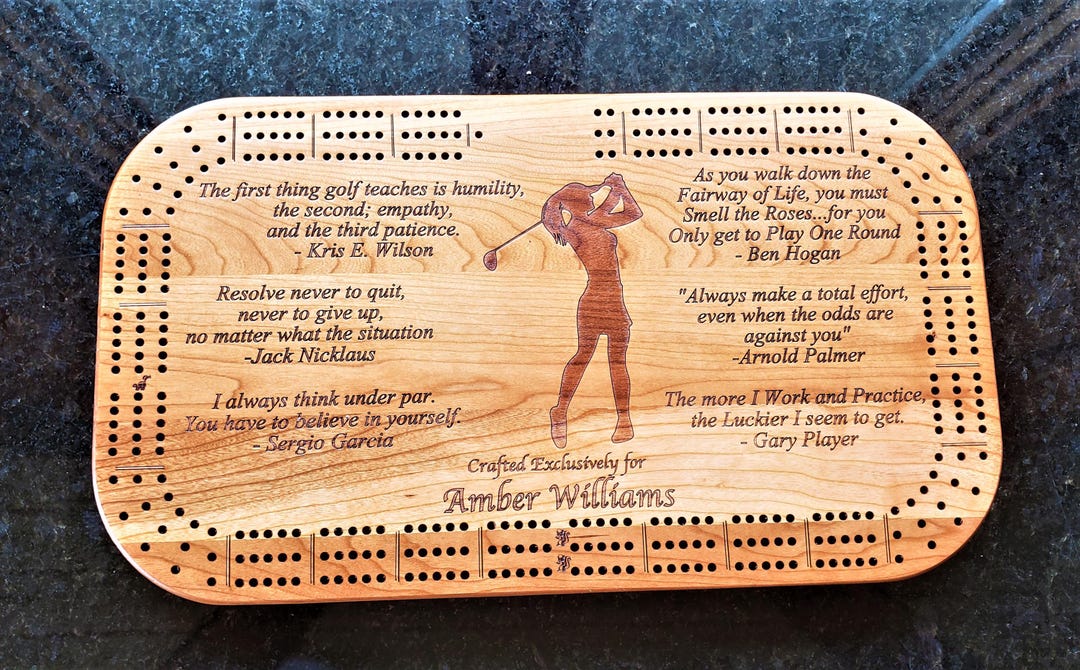 The first thing golf teaches is humility,
the second; empathy,
and the third patience.
- Kris E. Wilson
Resolve never to quit,
never to give up,
no matter what the situation
-Jack Nicklaus
I always think under par.
You have to believe in yourself.
- Sergio Garcia
As you walk down the
Fairway of Life, you must
Smell the Roses...for you
Only get to Play One Round
- Ben Hogan
"Always make a total effort,
even when the odds are
against you"
-Arnold Palmer
The more I Work and Practice,
the Luckier I seem to get.
- Gary Player
Crafted Exclusively for
Amber Williams